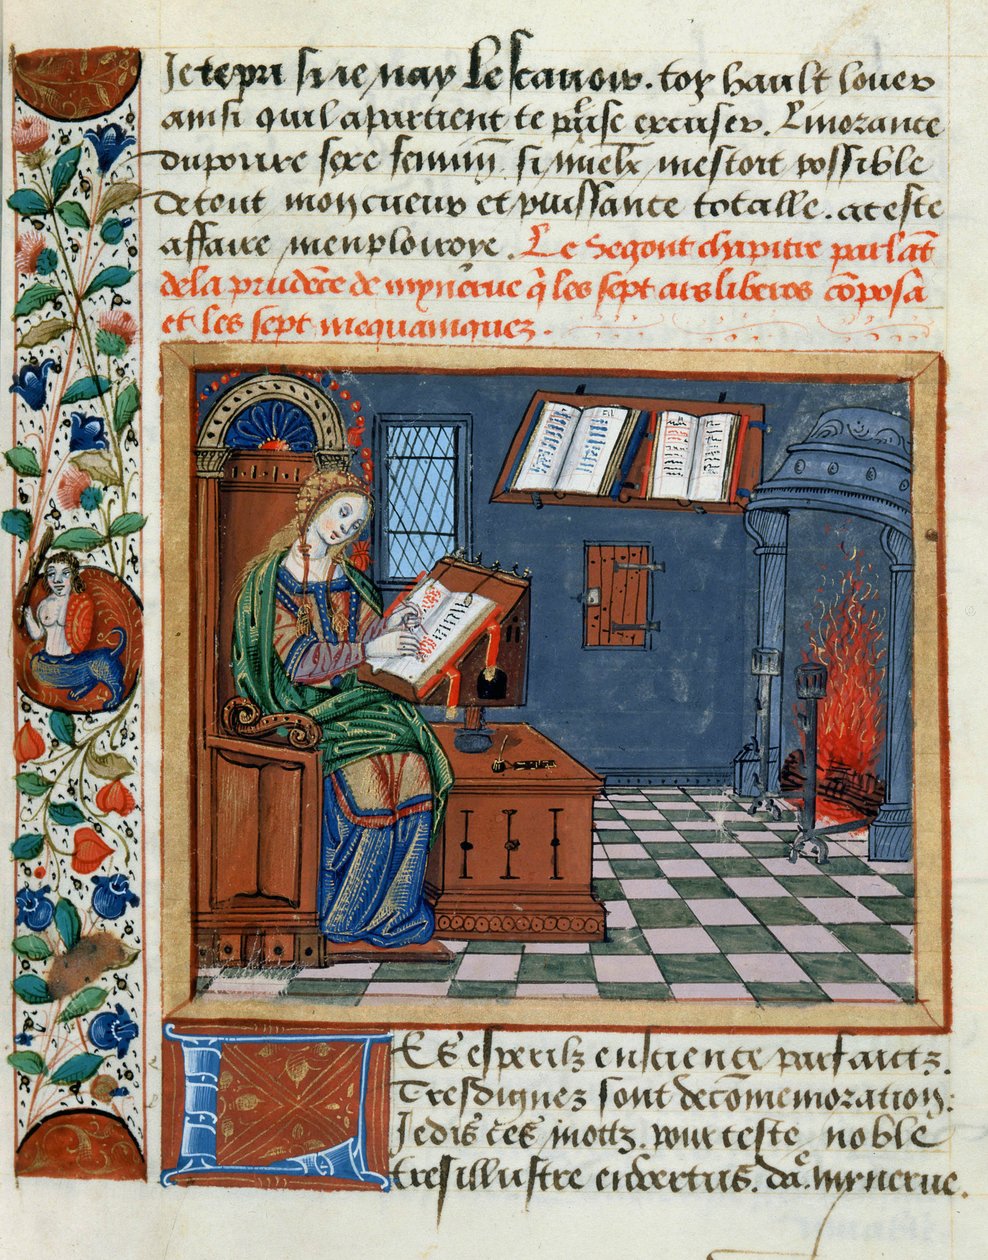 Je te pri si je nay le scavoir. toy hault louer
ainsi quil apartient te puisse excuser. Linorance
du povre sexe feminin si mieulx mestoit possible
de tout mon cueur et puissance totalle. a ceste
affaire menploiroye. Le Segont chapitre parlāt
de la prudēce de mynerve q̄ les sept ars liberos cōposa
et les sept mequaniquez.
Les esperilz en science parfaictz.
Tres dignez sont de cōmemoration:
Je dis ces mottz. pour ceste noble
tresillustre en vertus. daē mynerve.